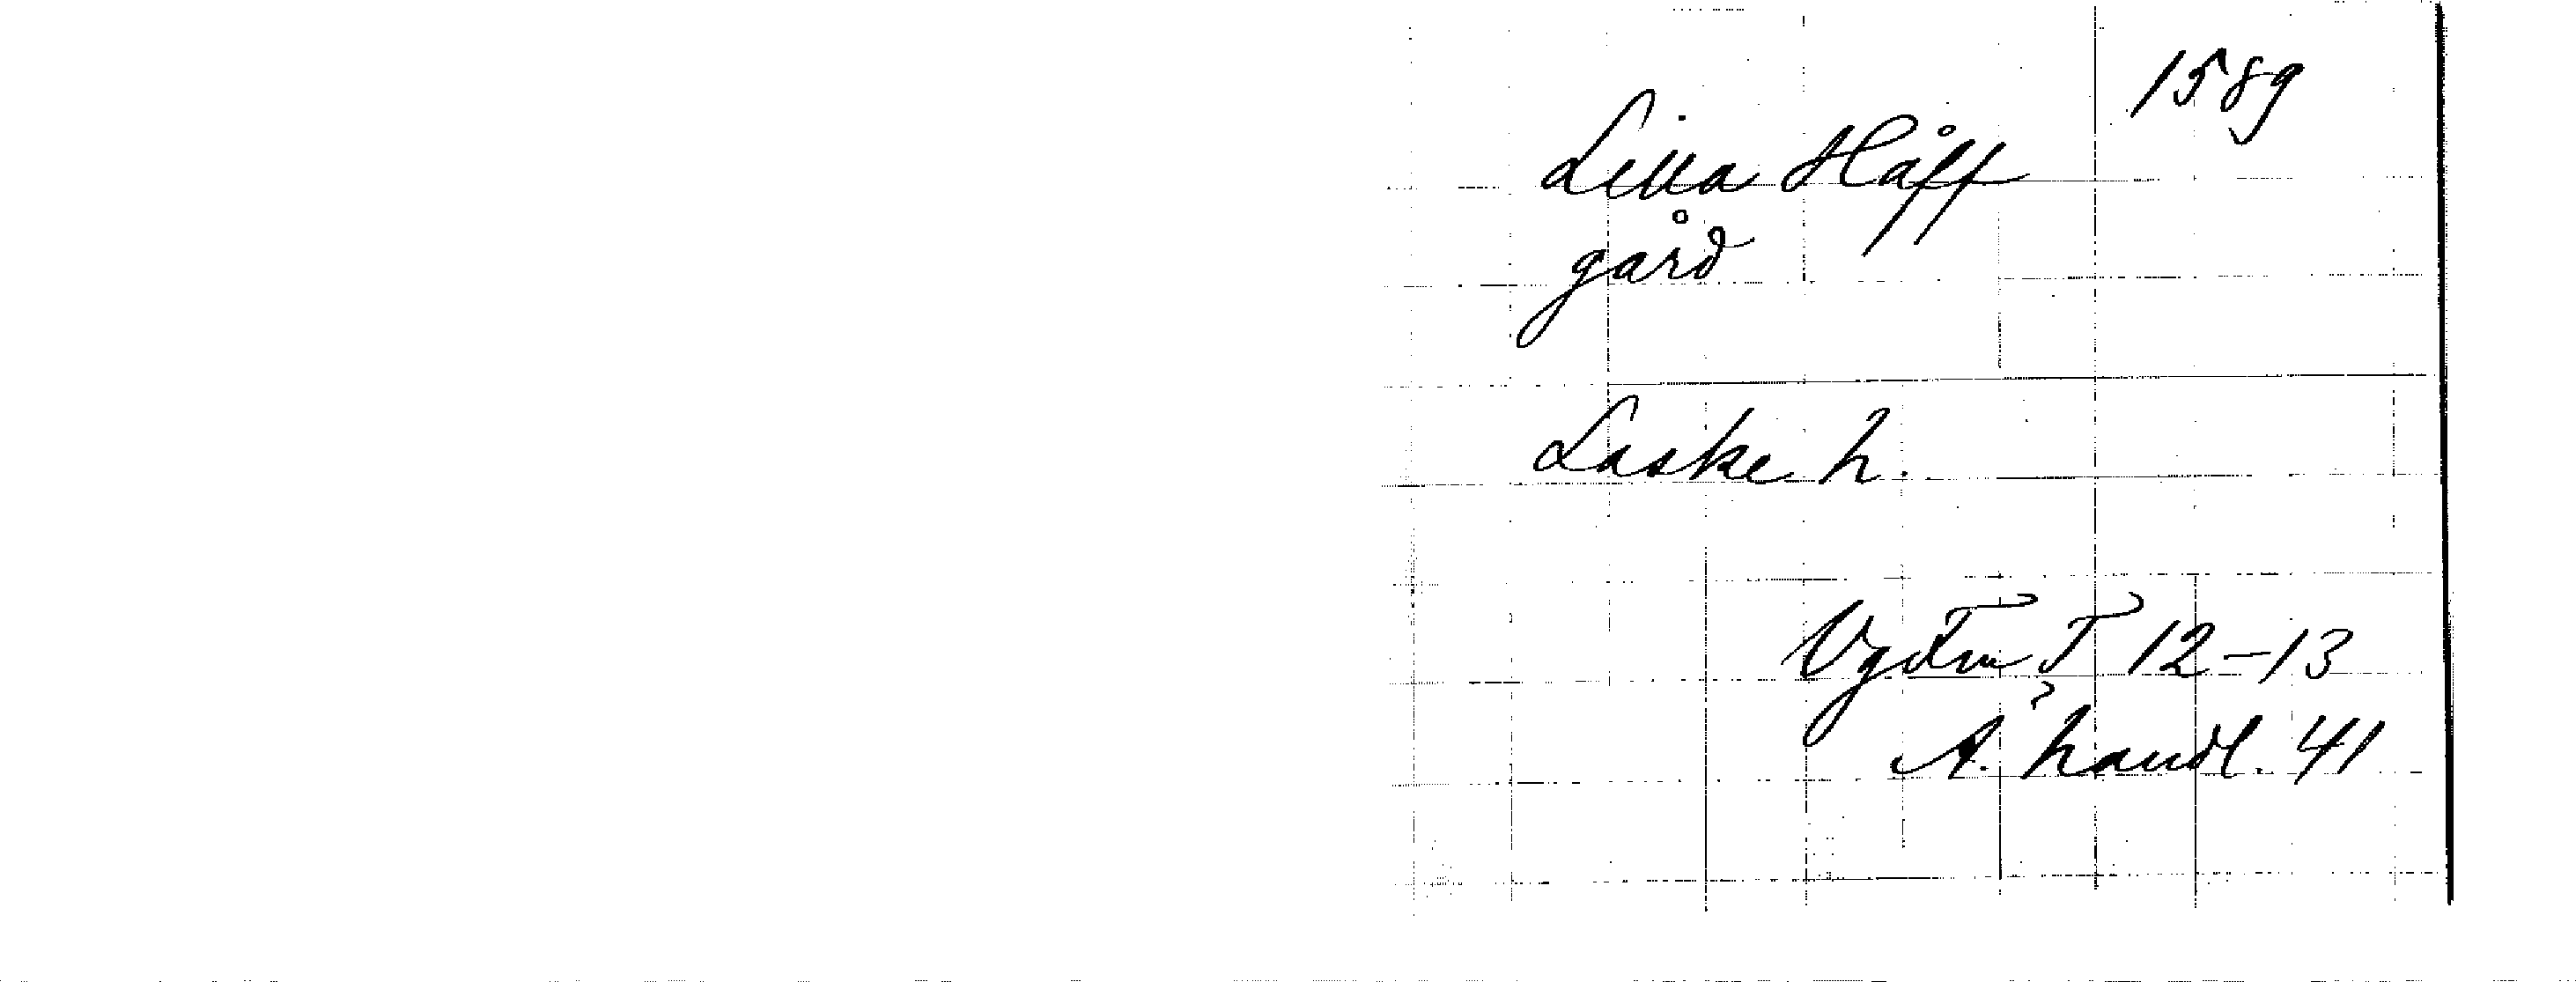 1589
Lilla Håff
gård
Laske h.
VgFm T 12-13
A. handl. 41